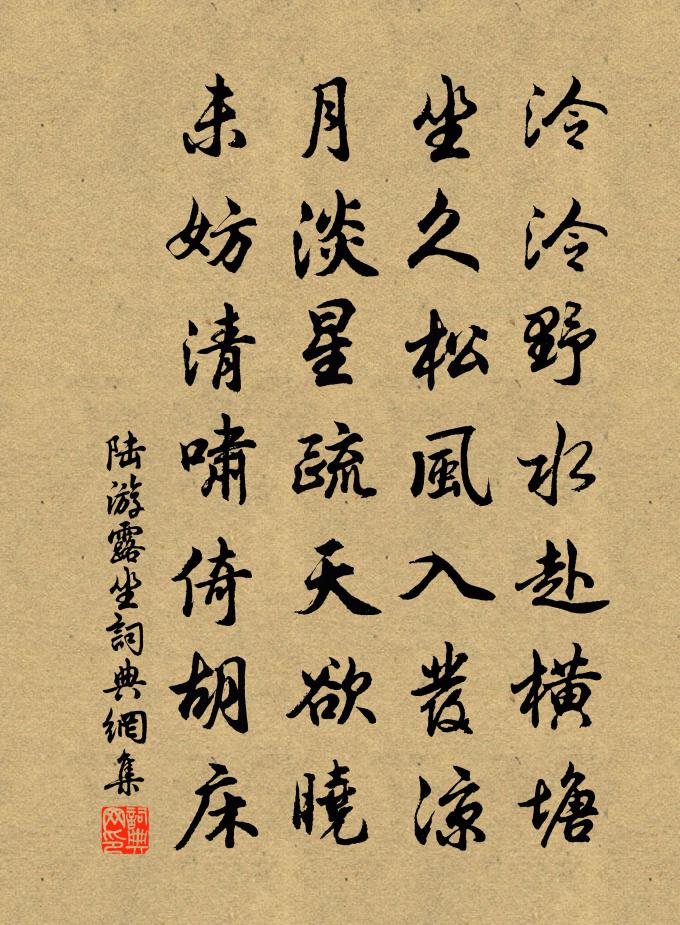 泠泠野水赴橫塘
坐久松風入發涼
月淡星疏天欲曉
未妨清嘯倚胡床
陆游露坐詞典網集
詞典網印